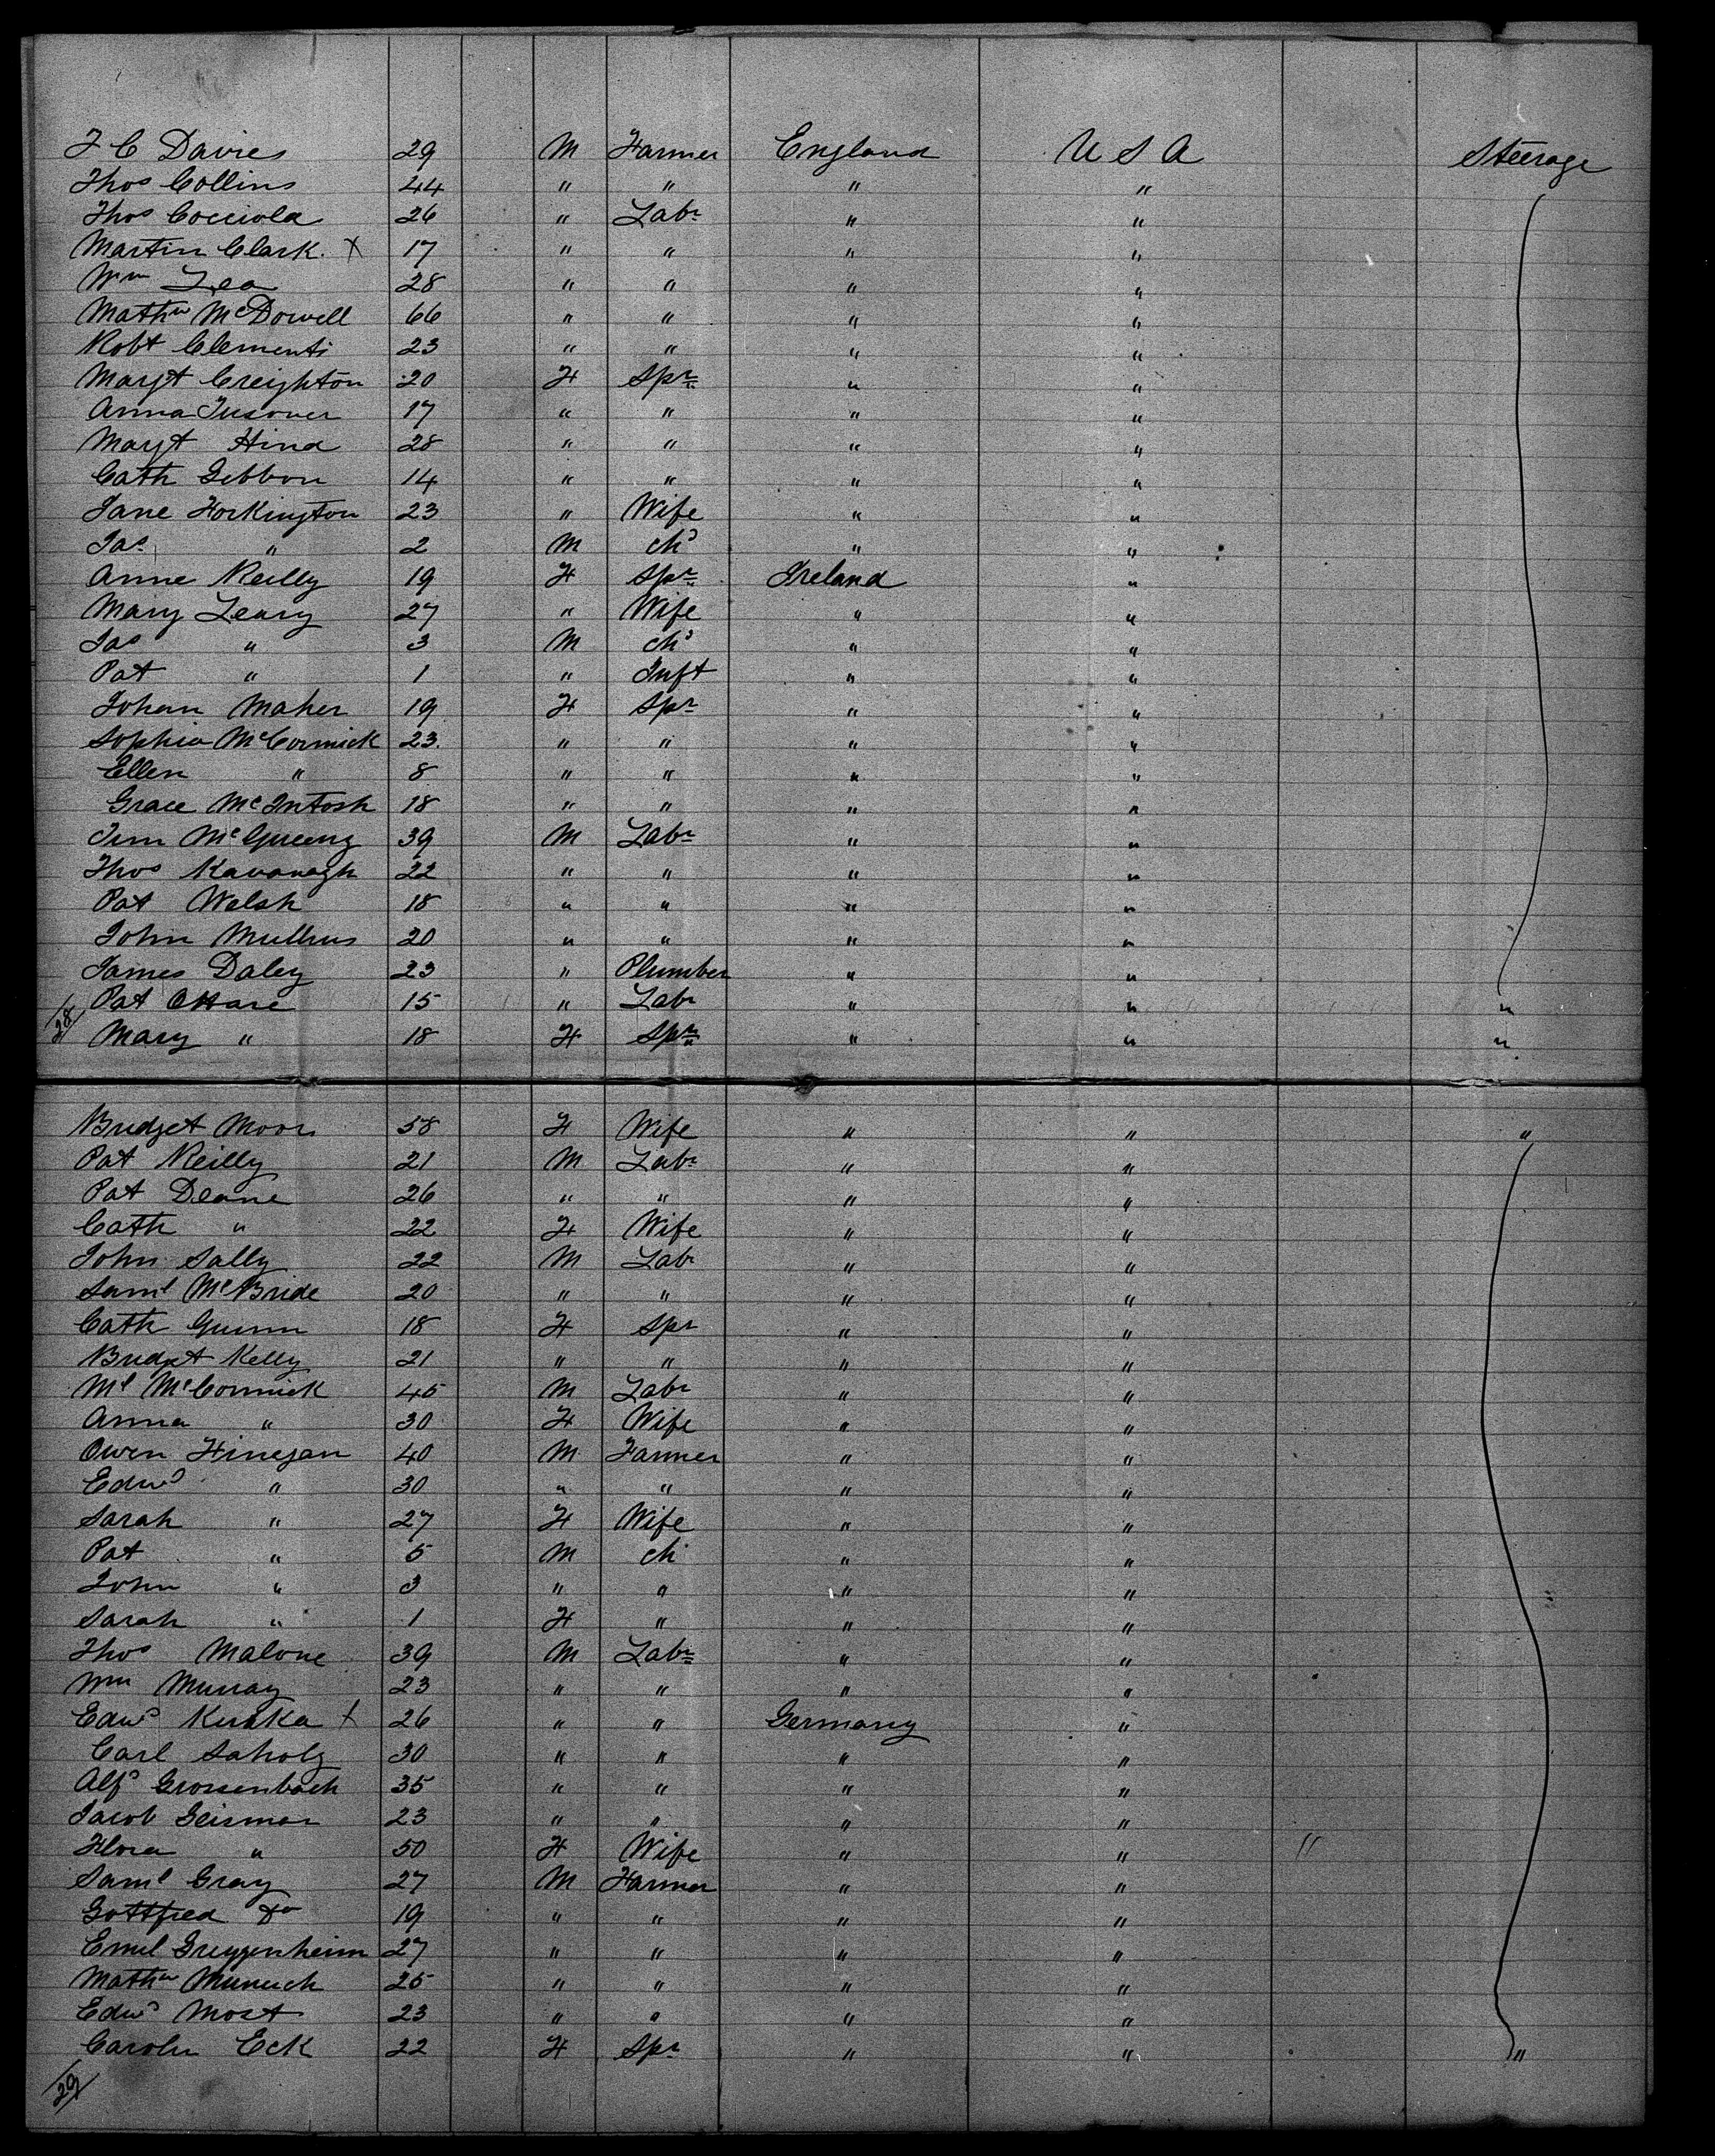 J C Davies 29 M Farmer England U S A Steerage
Thos Collins 44 " " " "
Thos Cocciola 26 " Labr " "
Martin Clark. X 17 " " " "
Wm Lea 28 " " " "
Mathw McDowell 66 " " " "
Robt Clements 23 " " " "
Margt Creighton 20 F Spr " "
Anna 17 " " " "
Margt Hind 28 " " " "
Cath Gibbon 14 " " " "
Jane Horkington 23 " Wife " "
Jas " 2 M chd " "
Anne Reilly 19 F Spr Ireland "
Mary Leary 27 " Wife " "
Jas " 3 M chd " "
Pat " 1 " Inft " "
Johan Maher 19 F Spr " "
Sophia McCormick 23. " " " "
Ellen " 8 " " " "
Grace McIntosh 18 " " " "
39 M Labr " "
Thos Kavanagh 22 " " " "
Pat Welsh 18 " " " "
John Mullins 20 " " " "
James Daley 23 " Plumber " "
Pat OHare 15 " Labr " " "
28 Mary " 18 F Spr " " "
Bridget Moor 58 F Wife " " "
Pat Reilly 21 M Labr " "
Pat Deane 26 " " " "
Cath " 22 F Wife " "
John Sally 22 M Labr " "
Saml McBride 20 " " " "
Cath Guinn 18 F Spr " "
Bridget Kelly 21 " " " "
Ml McCormick 45 M Labr " "
Anna " 30 F Wife " "
Owen Finegan 40 M Farmer " "
Edwd " 30 " " " "
Sarah " 27 F Wife " "
Pat " 5 M ch " "
John " 3 " " " "
Sarah " 1 F " " "
Thos Malone 39 M Labr " "
Wm Murray 23 " " " "
Edwd X 26 " " Germany "
Carl Saholz 30 " " " "
Alfd Grossenbach 35 " " " "
Jacob Geismar 23 " " " "
Flora " 50 F Wife " " "
Saml Gray 27 M Farmer " "
Gottfred do 19 " " " "
Emil Greggenheim 27 " " " "
Mathw Munich 25 " " " "
Edwd Most 23 " " " "
Carolin Eck 22 F Spr " " "
29